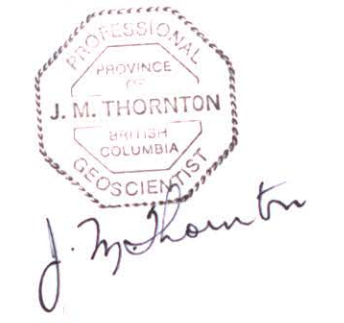 PROFESSIONAL
PROVINCE
OF
J. M. THORNTON
BRITISH
COLUMBIA
GEOSCIENTIST
J. M. Thornton